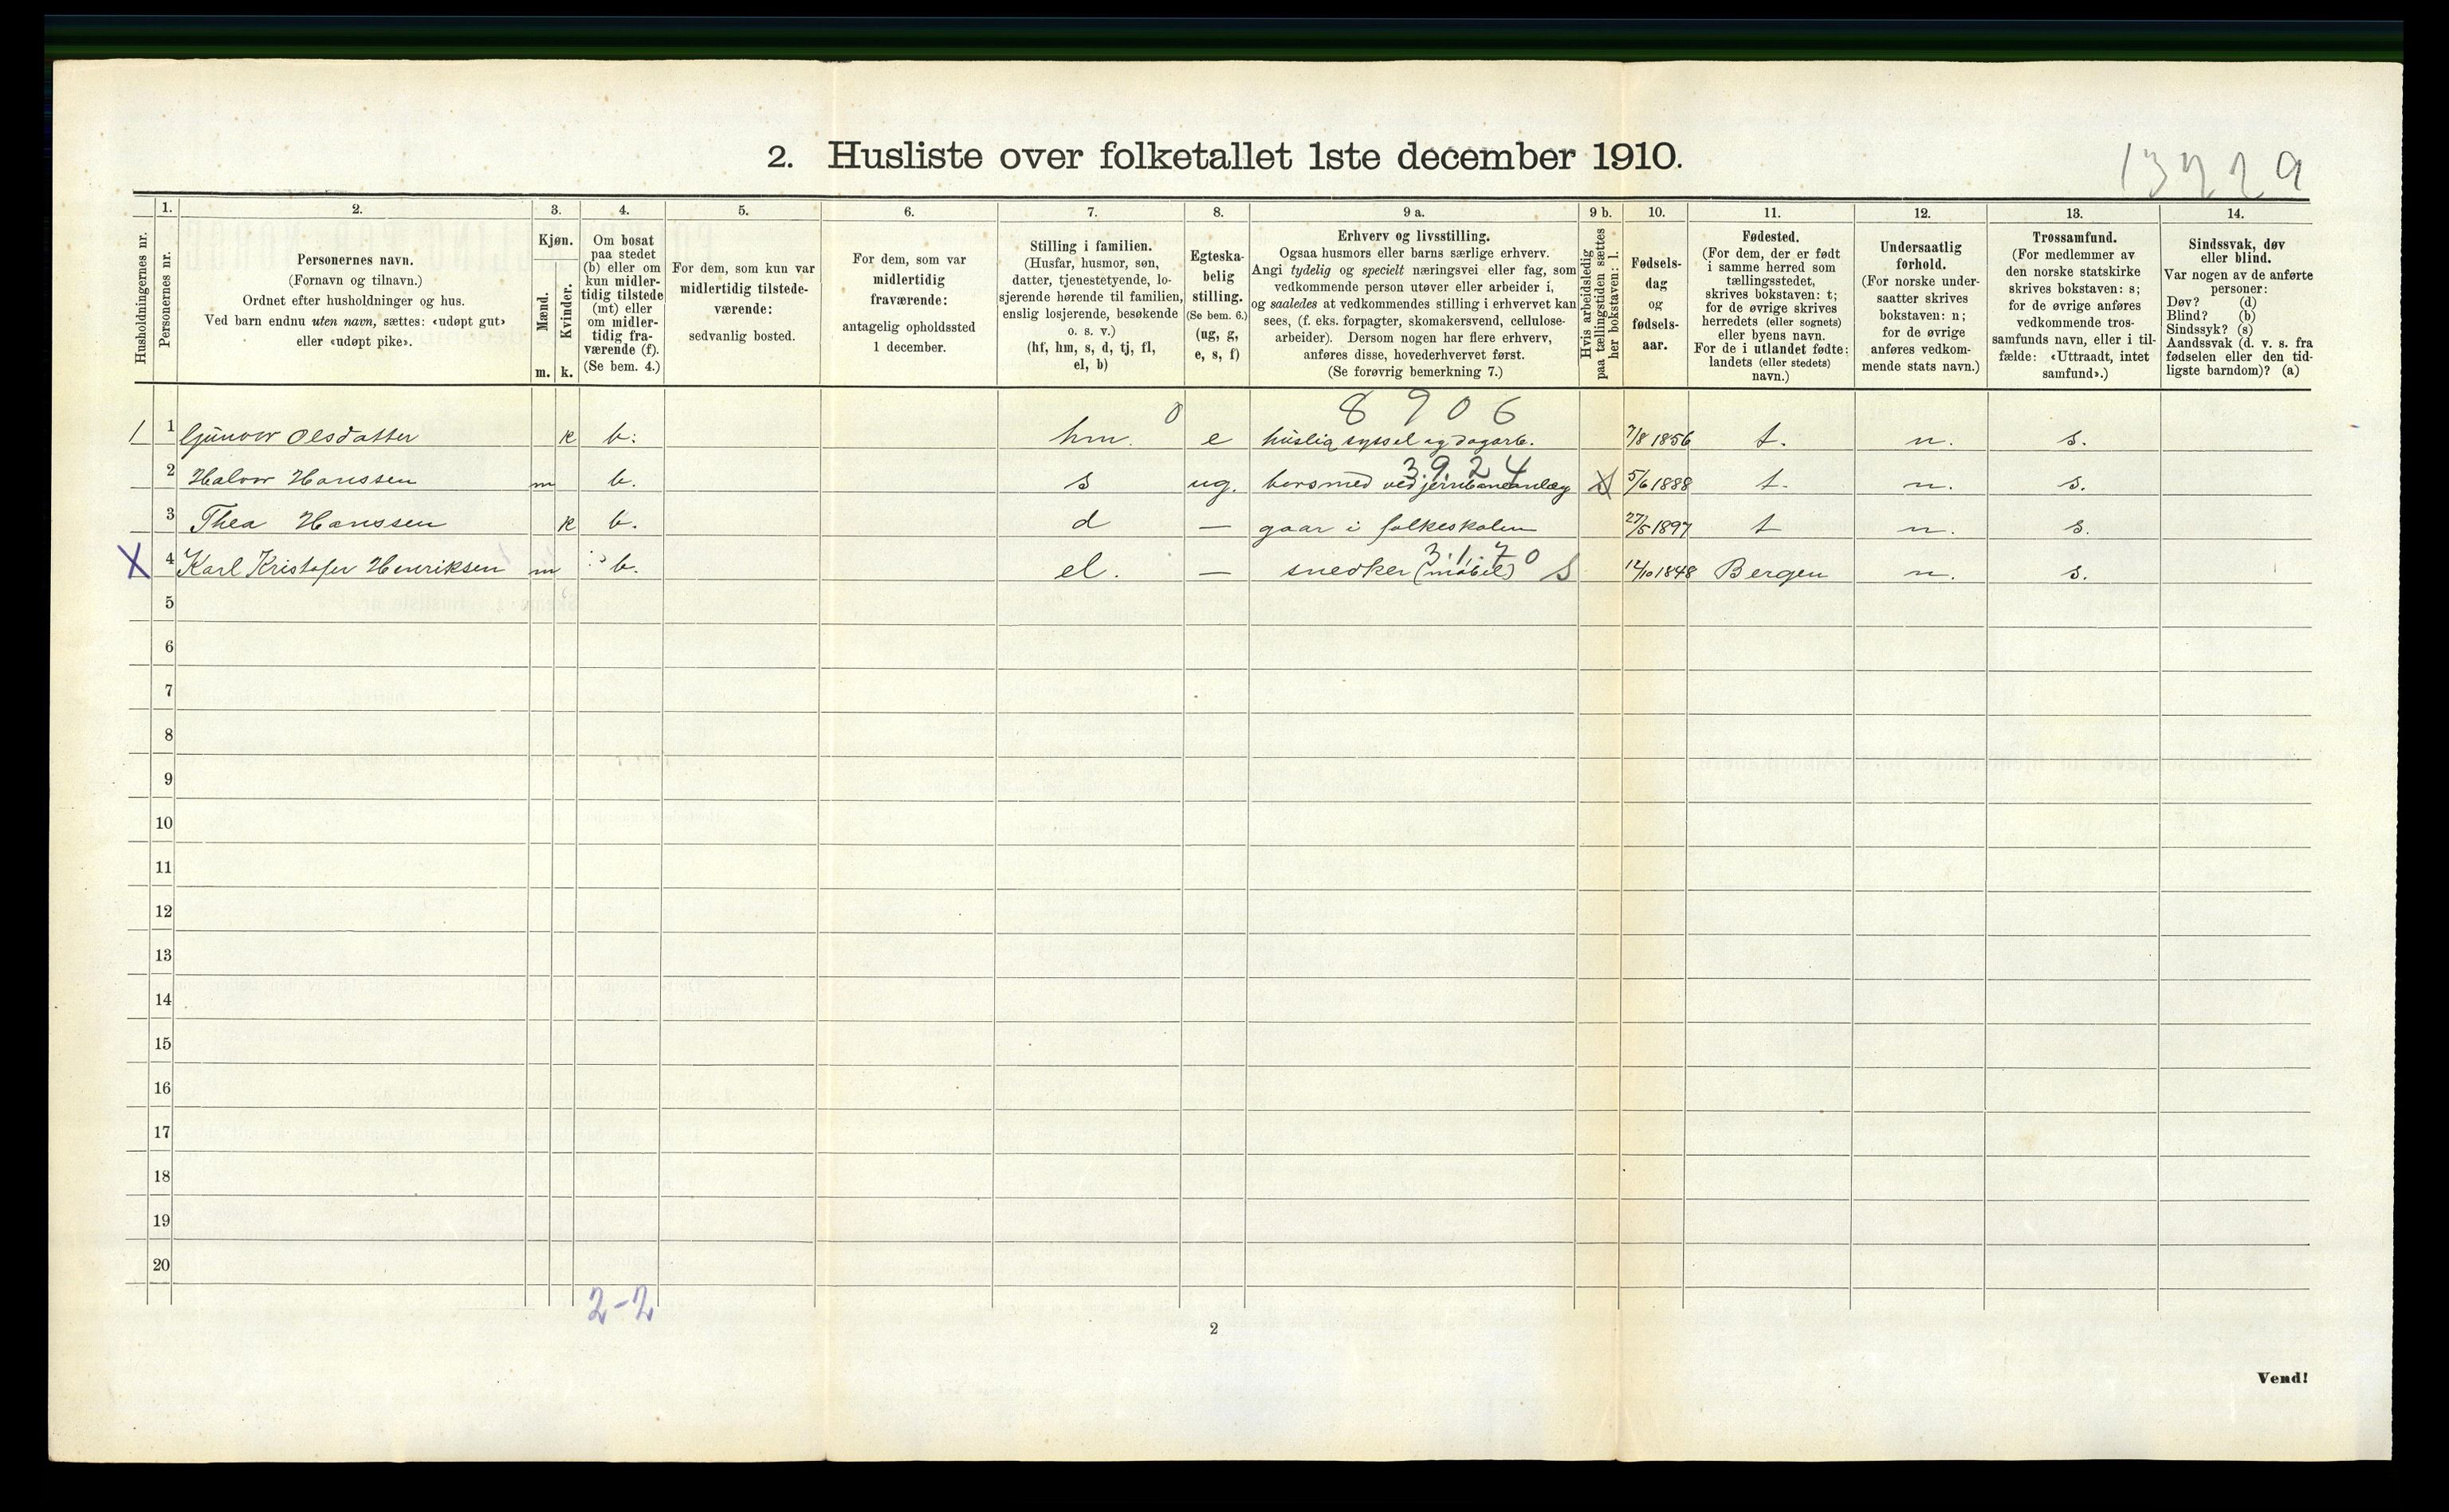 2. Husliste over folketallet 1ste december 1910.
13229
Husholdningernes nr.
1.
Personernes nr.
2.
Personernes navn.
(Fornavn og tilnavn.)
Ordnet efter husholdninger og hus.
Ved barn endnu uten navn, sættes: «udøpt gut»
eller «udøpt pike».
3.
Kjøn.
Mænd.
Kvinder.
m. k.
4.
Om bosat
paa stedet
(b) eller om
kun midler-
tidig tilstede
(mt) eller
om midler-
tidig fra-
værende (f).
(Se bem. 4.)
5.
For dem, som kun var
midlertidig tilstede-
værende:
sedvanlig bosted.
6.
For dem, som var
midlertidig
fraværende:
antagelig opholdssted
1 december.
7.
Stilling i familien.
(Husfar, husmor, søn,
datter, tjenestetyende, lo-
sjerende hørende til familien,
enslig losjerende, besøkende
o. s. v.)
(hf, hm, s, d, tj, fl,
el, b)
8.
Egteska-
belig
stilling.
(Se bem. 6.)
(ug, g,
e, s, f)
9 a.
Erhverv og livsstilling.
Ogsaa husmors eller barns særlige erhverv.
Angi tydelig og specielt næringsvei eller fag, som
vedkommende person utøver eller arbeider i,
og saaledes at vedkommendes stilling i erhvervet kan
sees, (f. eks. forpagter, skomakersvend, cellulose-
arbeider). Dersom nogen har flere erhverv,
anføres disse, hovederhvervet først.
(Se forøvrig bemerkning 7.)
9 b.
Hvis arbeidsledig
paa tællingstiden sættes
her bokstaven: l.
10.
Fødsels-
dag
og
fødsels-
aar.
11.
Fødested.
(For dem, der er født
i samme herred som
tællingsstedet,
skrives bokstaven: t;
for de øvrige skrives
herredets (eller sognets)
eller byens navn.
For de i utlandet fødte:
landets (eller stedets)
navn.)
12.
Undersaatlig
forhold.
(For norske under-
saatter skrives
bokstaven: n;
for de øvrige
anføres vedkom-
mende stats navn.)
13.
Trossamfund.
(For medlemmer av
den norske statskirke
skrives bokstaven: s;
for de øvrige anføres
vedkommende tros-
samfunds navn, eller i til-
fælde: «Uttraadt, intet
samfund».)
14.
Sindssvak, døv
eller blind.
Var nogen av de anførte
personer:
Døv? (d)
Blind? (b)
Sindssyk? (s)
Aandssvak (d. v. s. fra
fødselen eller den tid-
ligste barndom)? (a)
0 8906
1 1 Gunvor Olsdatter k b. hm. e huslig syssel og dagarb. 7/8 1856 t. n. s.
3.9.24
2 Halvor Hanssen m b. s ug. borsmed ved jernbaneanlæg 5/6 1888 t. n. s.
3 Thea Hanssen k b. d — gaar i folkeskolen 27/5 1897 t n. s.
3.1.70
X 4 Karl Kristofer Henriksen m b. el. — snedker (møbel) S 12/10 1848 Bergen n. s.
5
6
7
8
9
10
11
12
13
14
15
16
17
18
19
20
2-2
2
Vend!